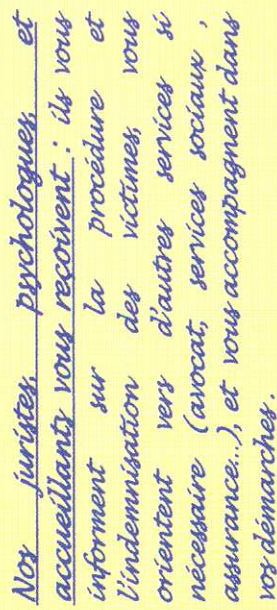 Nos juristes, psychologues, et
accueillants vous reçoivent : ils vous
informent sur la procédure et
l'indemnisation des victimes, vous
orientent vers d'autres services si
nécessaire (avocat, services sociaux ,
assurance...), et vous accompagnent dans
vos démarches.